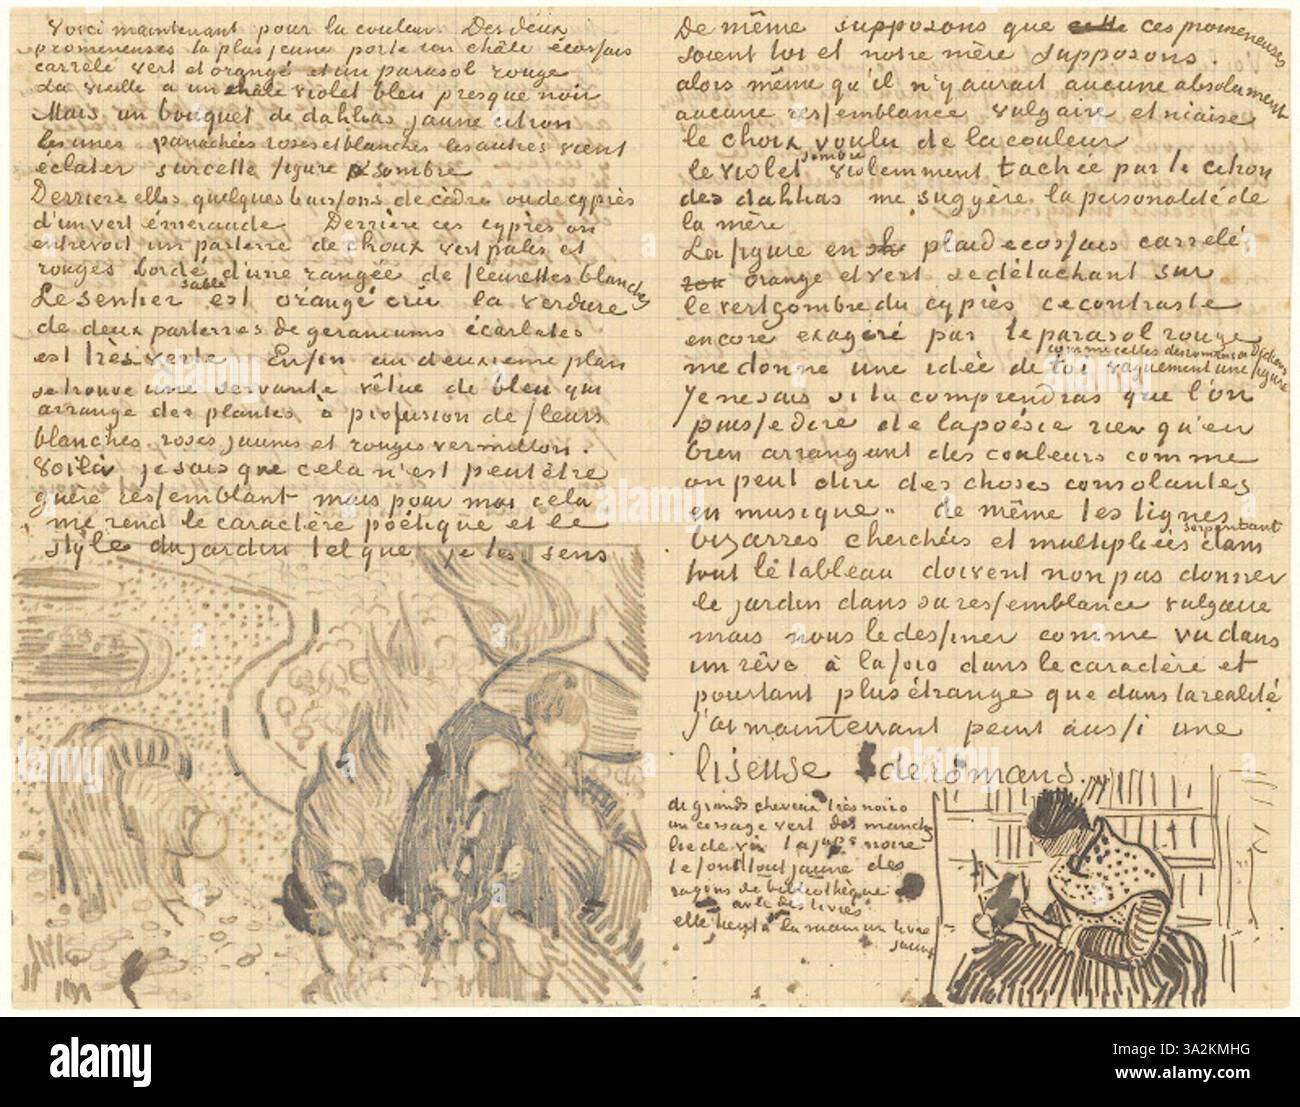 Voici maintenant pour la couleur Des deux
promeneuses la plus jeune porte un châle écossais
carrelé vert et orangé et un parasol rouge
La vieille a un châle violet bleu presque noir
Mais un bouquet de dahlias jaune citron
les unes panachées roses et blanches les autres vient
éclater sur cette figure sombre
Derrière elles quelques buissons de cèdre ou de cyprès
d'un vert émeraude Derrière ces cyprès on
entrevoit un parterre de choux verts pales et
rouges bordé d'une rangée de fleurettes blanches
Le sentier sablé est orangé cru la verdure
de deux parterres de geraniums écarlates
est très verte Enfin au deuxieme plan
se trouve une servante vêtue de bleu qui
arrange des plantes à profusion de fleurs
blanches roses jaunes et rouges vermillon.
Voilà je sais que cela n'est peut être
guère ressemblant mais pour moi cela
me rend le caractère poëtique et le
style du jardin tel que je les sens
De même supposons que cette ces promeneuses
soient toi et notre mère supposons.
alors même qu'il n'y aurait aucune absolument
aucune ressemblance vulgaire et niaise
le choix voulu de la couleur
le violet sombre violemment tachée par le citron
des dahlias me suggère la personalité de
la mère
La figure en plaid ecossais carrelé
orange et vert se détachant sur
le vert sombre du cyprès ce contraste
encore exagéré par le parasol rouge
me donne une idée de toi vaguement une figure
comme celles des romans de Dickens
Je ne sais si tu comprendras que l'on
puisse dire de la poésie rien qu'en
bien arrangeant des couleurs comme
on peut dire des choses consolantes
en musique.. de même les lignes
bizarres cherchées et multipliées serpentant dans
tout le tableau doivent non pas donner
le jardin dans sa ressemblance vulgaire
mais nous le dessiner comme vu dans
un rêve à la fois dans le caractère et
pourtant plus étrange que dans la realité
J'ai maintenant peint aussi une
liseuse de romans.
de grands cheveux très noirs
un corsage vert des manches
lie de vin la jupe noire
le fond tout jaune des
rayons de bibliothèque
avec des livres
elle tient à la main un livre
jaune
alamy
Image ID: 3A2KMHG
www.alamy.com